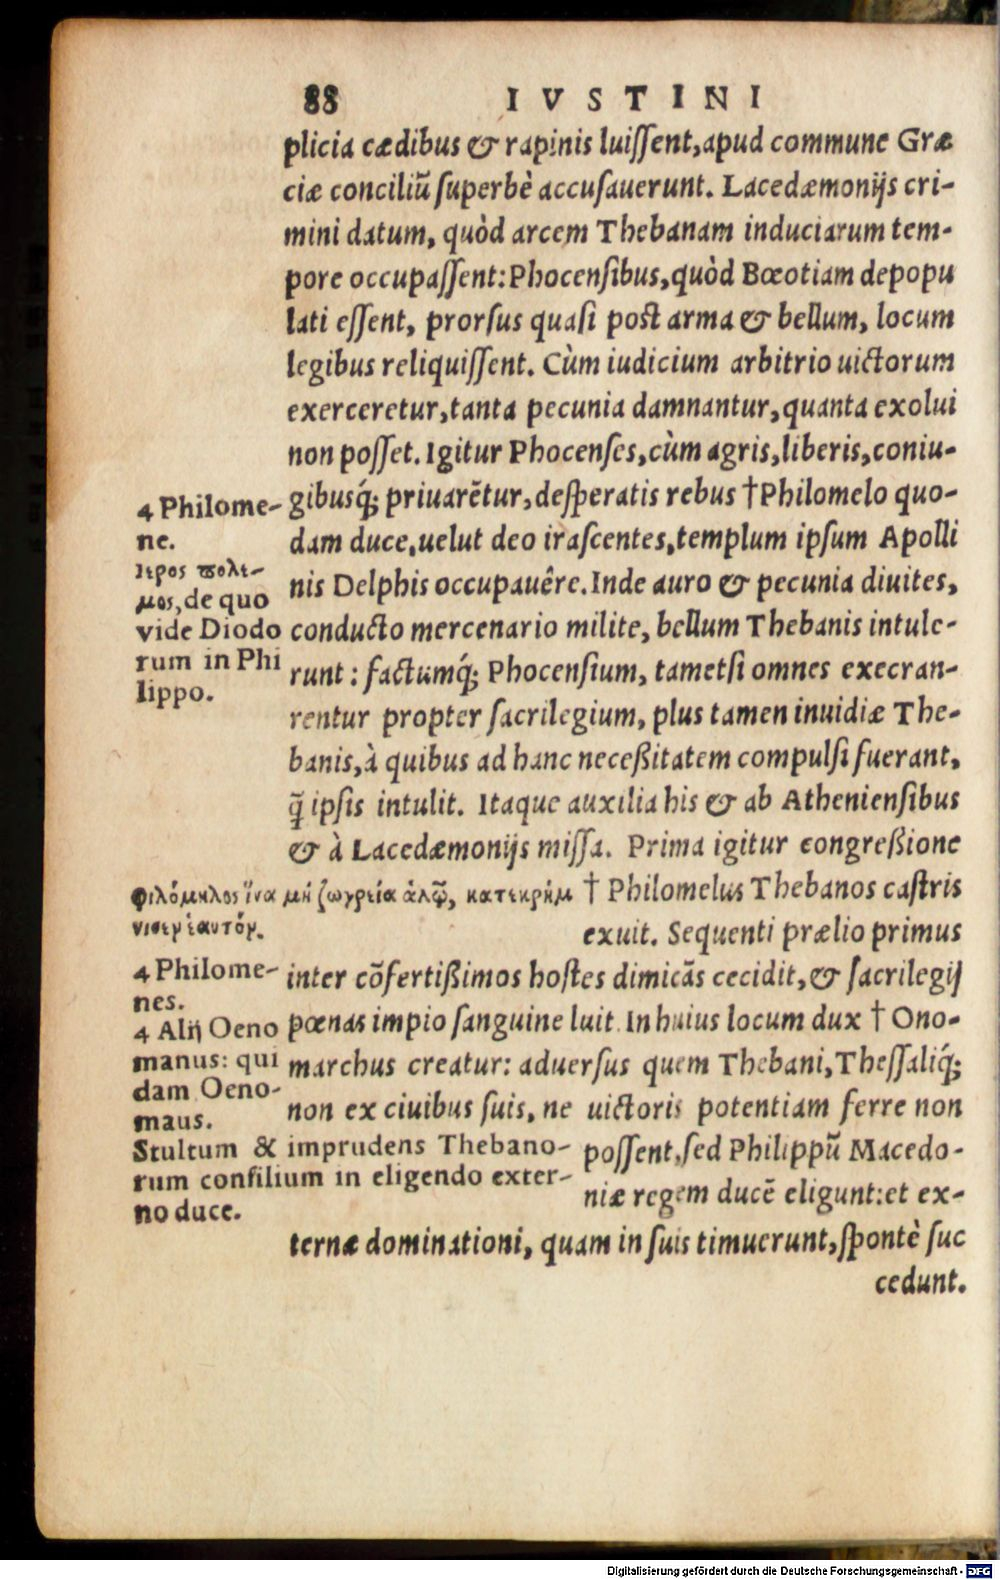 88 IVSTINI
plicia cædibus & rapinis luiſſent,apud commune Græ
ciæ conciliũ ſuperbè accuſauerunt. Lacedæmonijs cri-
mini datum, quòd arcem Thebanam induciarum tem-
pore occupaſſent:Phocenſibus,quòd Bœotiam depopu
lati eſſent, prorſus quaſi poſt arma & bellum, locum
legibus reliquiſſent. Cùm iudicium arbitrio uictorum
exerceretur,tanta pecunia damnantur,quanta exolui
non poſſet. Igitur Phocenſes,cùm agris,liberis,coniu-
gibusq́; priuarẽtur,deſperatis rebus †Philomelo quo-
dam duce,uelut deo iraſcentes,templum ipſum Apolli
nis Delphis occupauêre.Inde auro & pecunia diuites,
conducto mercenario milite, bellum Thebanis intule-
runt: factumq́; Phocenſium, tametſi omnes execran-
rentur propter ſacrilegium, plus tamen inuidiæ The-
banis,à quibus ad hanc neceßitatem compulſi fuerant,
q̃ ipſis intulit. Itaque auxilia his & ab Athenienſibus
& à Lacedæmonijs miſſa. Prima igitur congreßione
† Philomelus Thebanos caſtris
exuit. Sequenti prælio primus
inter cõfertißimos hoſtes dimicãs cecidit,& ſacrilegij
pœnas impio ſanguine luit. In huius locum dux † Ono-
marchus creatur: aduerſus quem Thebani,Theſſaliq́;
non ex ciuibus ſuis, ne uictoris potentiam ferre non
poſſent,ſed Philippũ Macedo-
niæ regem ducẽ eligunt:et ex-
ternæ dominationi, quam in ſuis timuerunt,ſpontè ſuc
cedunt.
4 Philome-
ne.
Ιερος πολε-
μος,de quo
vide Diodo
rum in Phi
lippo.
φιλόμηλος ἵνα μὴ ζωγρεία ἁλῷ, κατεκρήμ
νισεν ἑαυτόν.
4 Philome-
nes.
4 Alij Oeno
manus: qui
dam Oeno-
maus.
Stultum & imprudens Thebano-
rum conſilium in eligendo exter-
no duce.
Digitalisierung gefördert durch die Deutsche Forschungsgemeinschaft - DFG